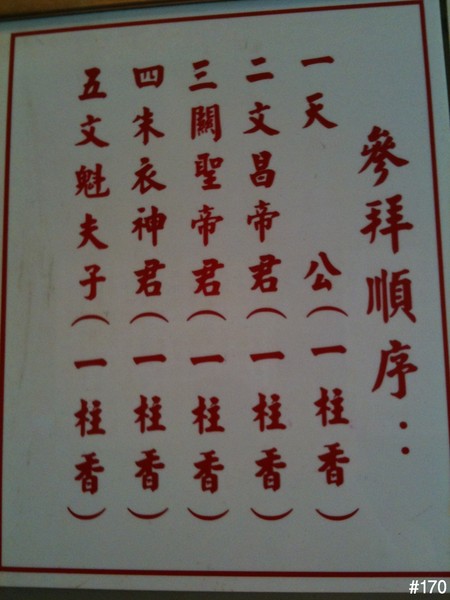 參拜順序：
一天公(一柱香)
二文昌帝君(一柱香)
三關聖帝君(一柱香)
四朱衣神君(一柱香)
五文魁夫子(一柱香)
#170